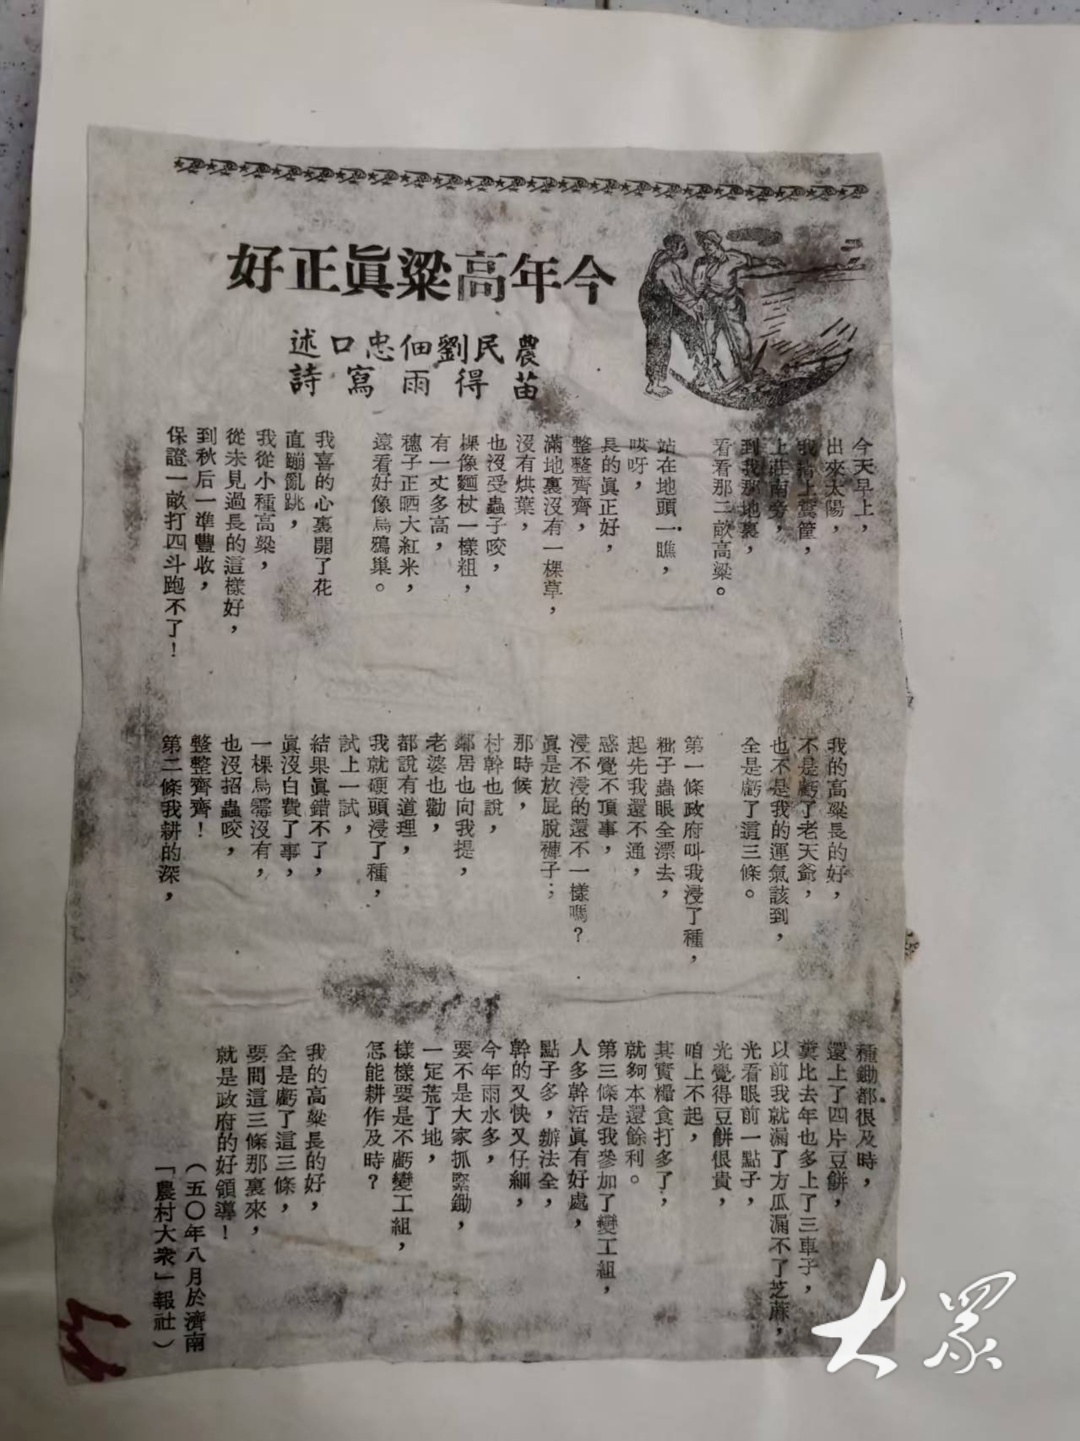 今年高粱眞正好
農民劉佃忠口述
苗得雨寫詩
今天早上，
出來太陽，
我背上糞筐，
上莊南旁，
到我那地裏，
看看那二畝高粱。
站在地頭一瞧，
哎呀，
長的眞正好，
整整齊齊，
滿地裏沒有一棵草，
沒有烘葉，
也沒受蟲子咬，
棵像麵杖一樣粗，
有一丈多高，
穗子正晒大紅米，
遠看好像烏鴉巢。
我喜的心裏開了花
直蹦亂跳，
我從小種高粱，
從未見過長的這樣好，
到秋后一準豐收，
保證一畝打四斗跑不了！
我的高粱長的好，
不是虧了老天爺，
也不是我的運氣該到，
全是虧了這三條。
第一條政府叫我浸了種，
秕子蟲眼全漂去，
起先我還不通，
感覺不頂事，
浸不浸的還不一樣嗎？
眞是放屁脫褲子；
那時候，
村幹也說，
鄰居也向我提，
老婆也勸，
都說有道理，
我就硬頭浸了種，
試上一試，
結果眞錯不了，
眞沒白費了事，
一棵烏霉沒有，
也沒招蟲咬，
整整齊齊！
第二條我耕的深，
種鋤都很及時，
還上了四片豆餅，
糞比去年也多上了三車子，
以前我就漏了方瓜漏不了芝蔴，
光看眼前一點子，
光覺得豆餅很貴，
咱上不起，
其實糧食打多了，
就夠本還餘利。
第三條是我參加了變工組，
人多幹活眞有好處，
點子多，辦法全，
幹的又快又仔細，
今年雨水多，
要不是大家抓緊鋤，
一定荒了地，
樣樣要是不虧變工組，
怎能耕作及時？
我的高粱長的好，
全是虧了這三條，
要問這三條那裏來，
就是政府的好領導！
（五〇年八月於濟南
「農村大衆」報社）
大眾